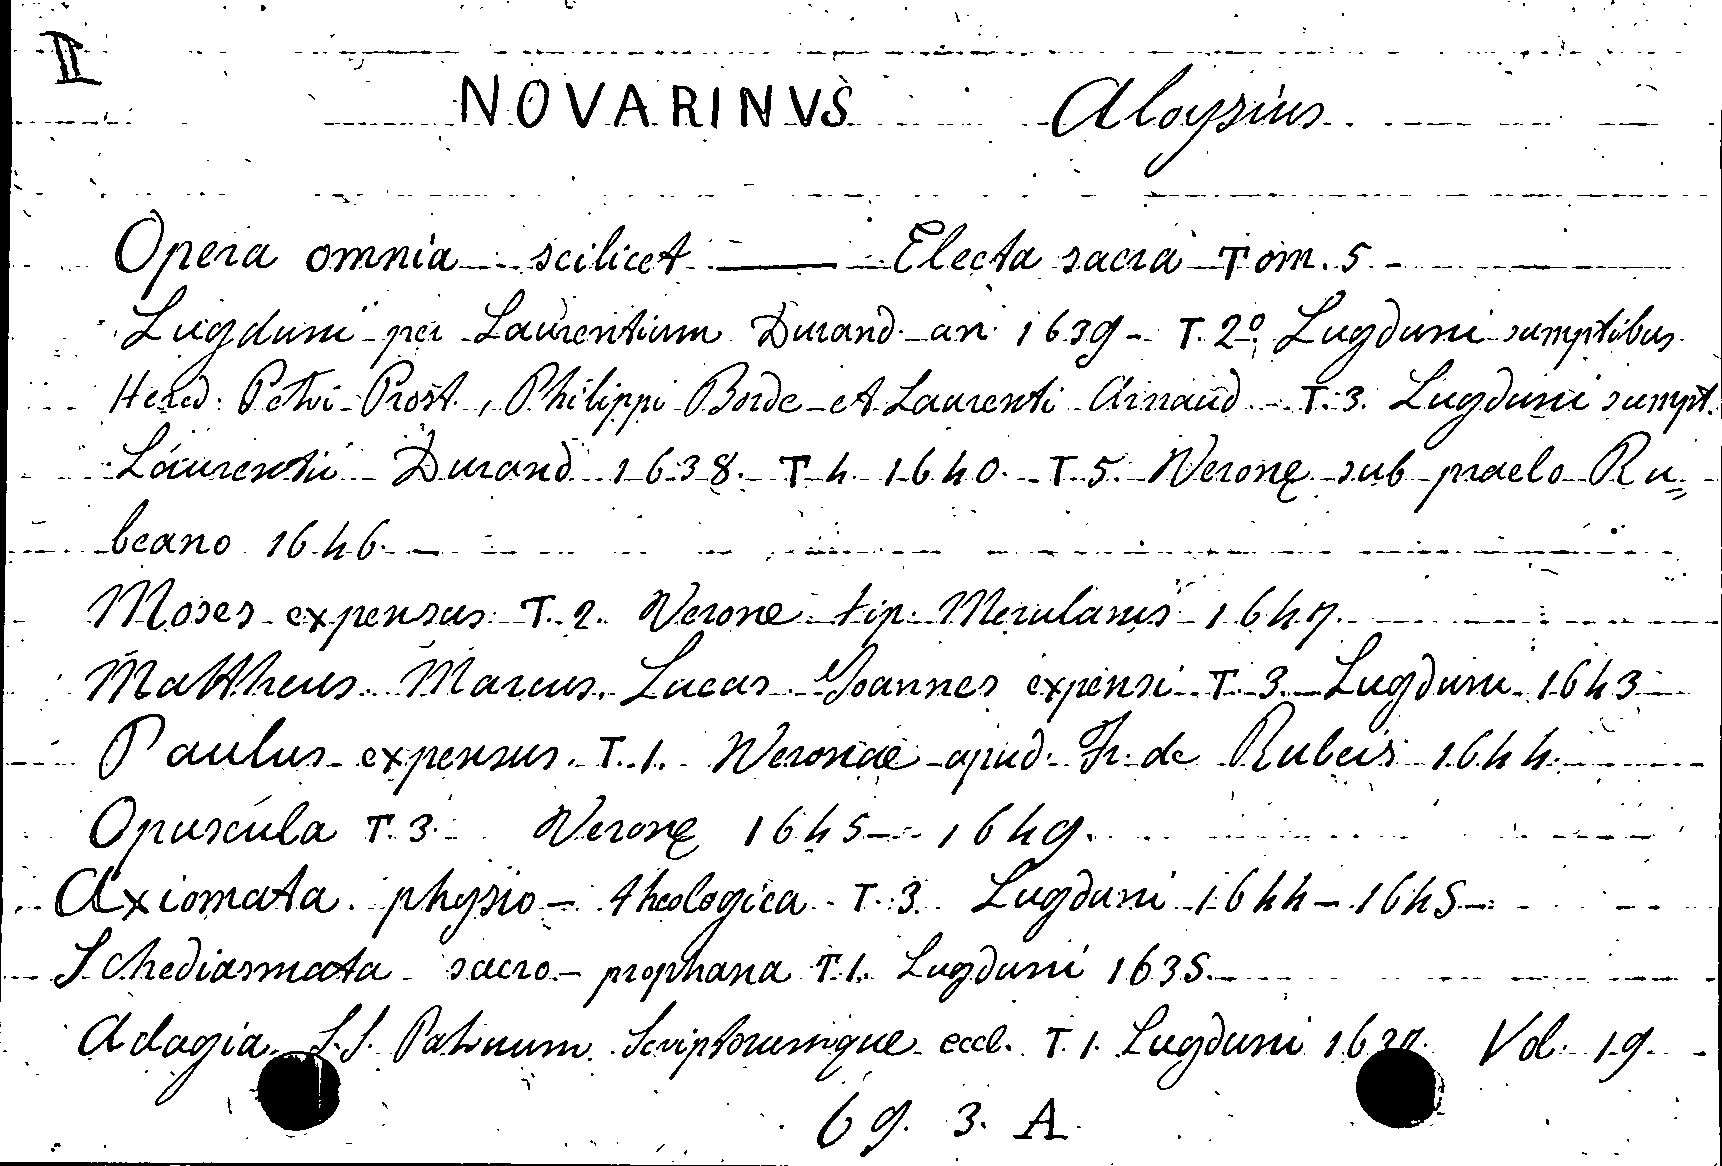 II
NOVARINVS Aloysius
Opera omnia scilicet — Electa sacra Tom. 5 -
Lugduni per Laurentium Durand an 1639 - T. 2º Lugduni sumptibus
Hered. Petri Prost, Philippi Borde et Laurenti Arnaud T. 3. Lugduni sumpt.
Laurentii Durand 1638. T 4. 1640. T. 5. Veronę sub praelo Ru=
beano 1646 -
Moses expensus T. 2. Verone tip. Merulanis 1647.
Mattheus Marcus, Lucas Joannes expensi T. 3. Lugduni 1643
Paulus expensus. T. 1. Veronae apud Fr. de Rubeis 1644.
Opuscula T. 3. Veronę 1645 - 1649.
Axiomata physio - theologica T. 3 Lugduni 1644 - 1645 -
Schediasmata sacro - prophana T. 1. Lugduni 1635.
Adagia S.S. Patrum Scriptorumque eccl. T. 1. Lugduni 1637. Vol. 19.
69. 3. A